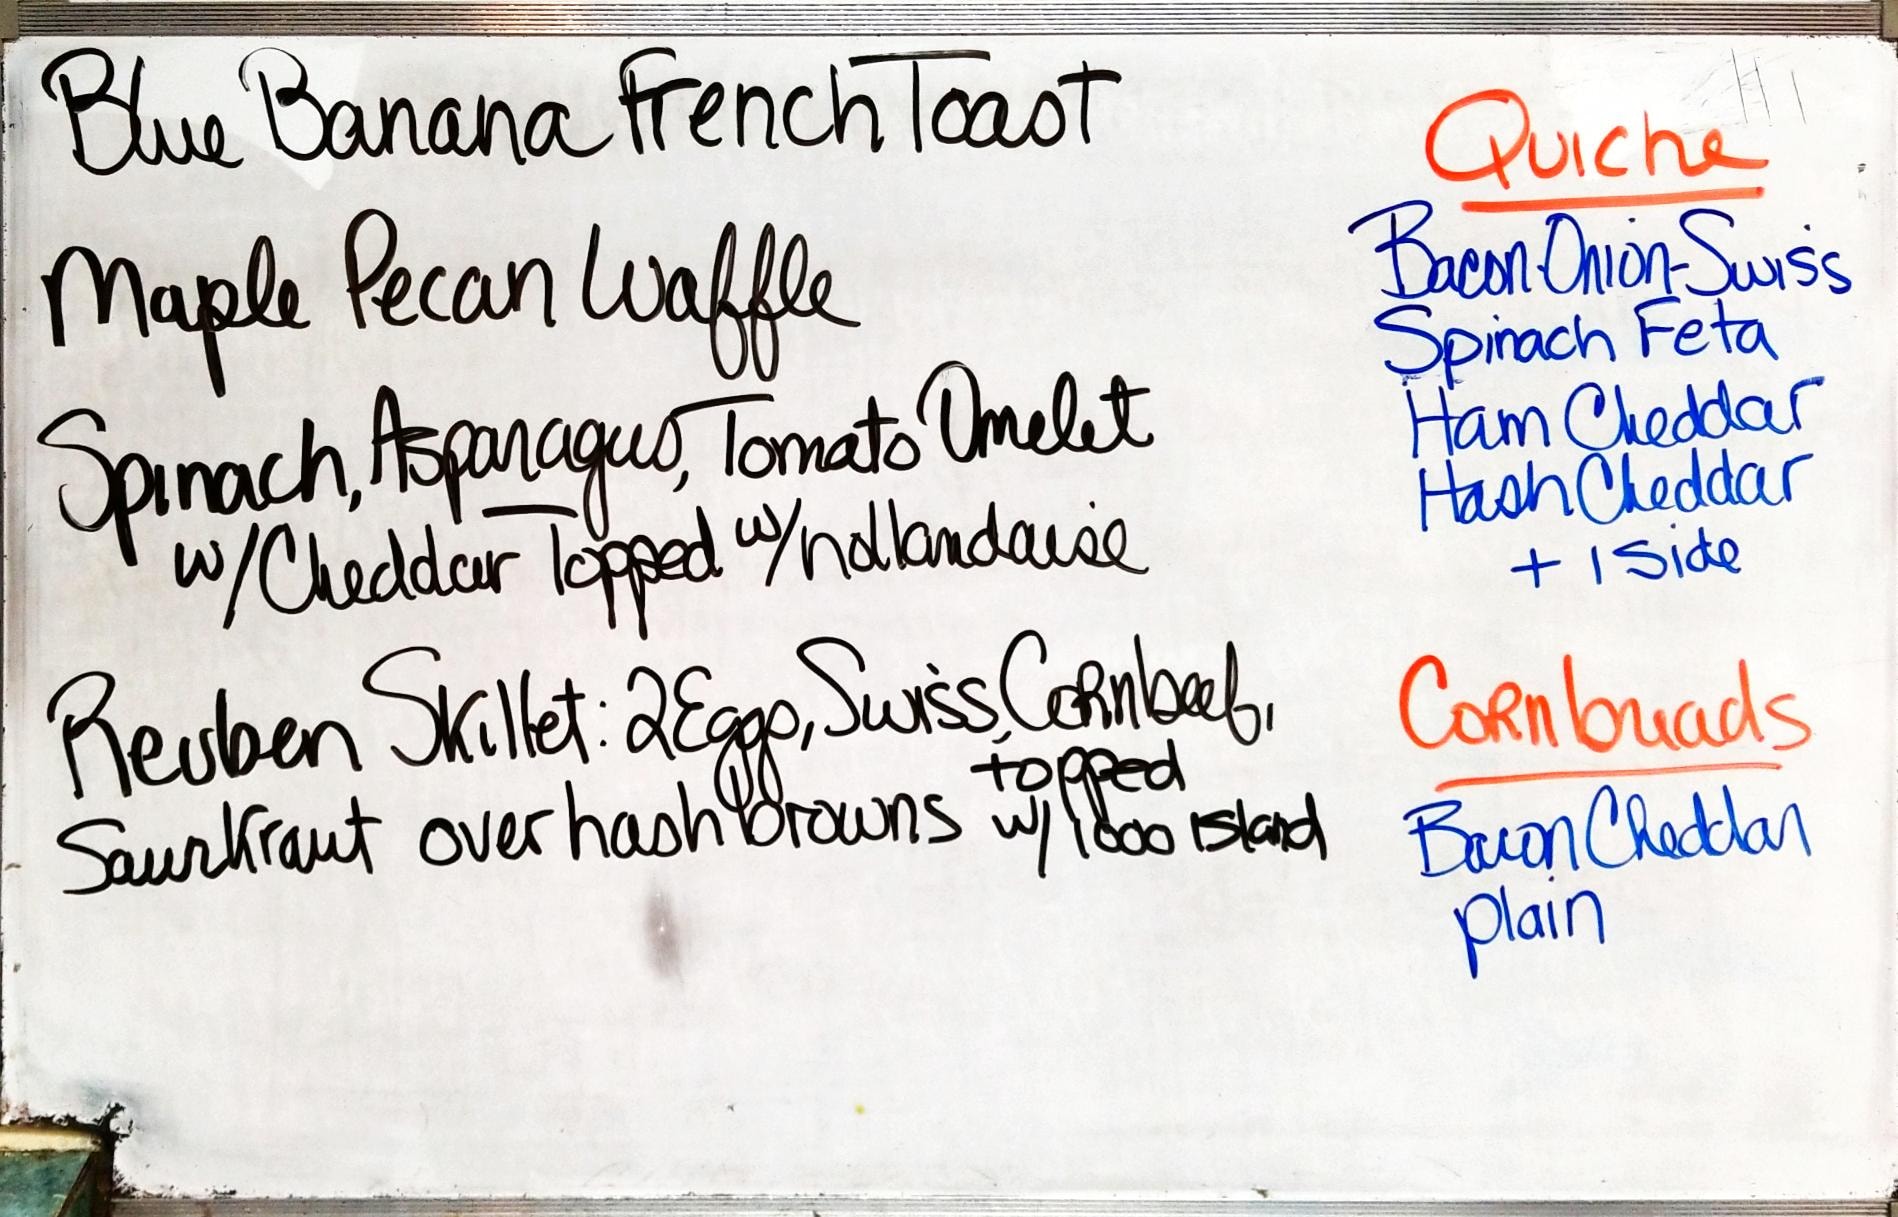 Blue Banana French Toast
Maple Pecan Waffle
Spinach, Asparagus, Tomato Omelet
w/Cheddar Topped w/hollandaise
Reuben Skillet: 2 Eggs, Swiss, Cornbeef,
Saurkraut over hashbrowns topped
w/ 1000 island
Quiche
Bacon-Onion-Swiss
Spinach Feta
Ham Cheddar
Hash Cheddar
+ 1 Side
Cornbreads
Bacon Cheddar
plain